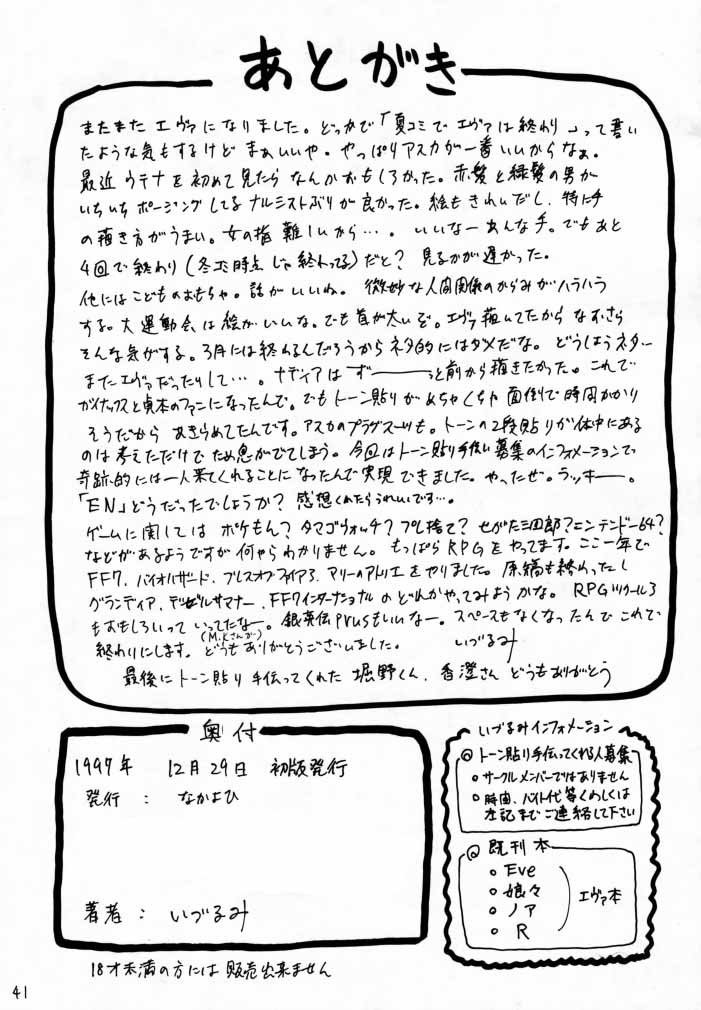 あとがき
またまた エヴァになりました。どっかで「夏コミで エヴァは終わり」って書い
たような気もするけど まぁいいや。やっぱりアスカが一番いいからなぁ。
最近 ウテナを初めて見たら なんかおもしろかった。赤髪と緑髪の男が
いちいち ポージングしてる ナルシストぶりが良かった。絵もきれいだし、特に手
の描き方がうまい。女の指 難しいから…。いいなーあんな手。でもあと
4回で終わり(冬コミ時点 じゃ終わってる)だと? 見るのが遅かった。
他にはこどものおもちゃ。話がいいね。 微妙な人間関係のからみがハラハラ
する。大運動会は絵がいいな。でも首が太いぞ。エヴァ描いてたから なおさら
そんな気がする。3月には終わるんだろうからネタ的にはダメだな。どうしようネター
またエヴァだったりして…。ナディアは ずーーーっと前から描きたかった。これで
ガイナックスと貞本のファンになったんで。でもトーン貼りがめちゃくちゃ 面倒で時間かかり
そうだから あきらめてたんです。アスカのプラグスーツも。トーンの2段貼りが体中にある
のは考えただけで ため息がでてしまう。今回はトーン貼り手伝い募集のインフォメーションで
奇跡的には一人来てくれることになったんで実現できました。やったぜ。ラッキー。
「EN」どうだったでしょうか? 感想くれたらうれしいです…。
ゲームに関しては ポケもん? タマゴウォッチ? プレ捨て? せがた三四郎? ニンテンドー64?
などがあるようですが何やらわかりません。もっぱらRPGをやってます。ここ一年で
FF7、バイオハザード、ブレスオブファイア3、マリーのアトリエをやりました。原稿も終わったし
グランディア、デビルサマナー、FF7インターナショナルのどれかやってみようかな。 RPGツクール3
もおもしろいって いってたなー。銀英伝Plusもいいなー。スペースもなくなったんで これで
(M.Kさんが)
終わりにします。どうもありがとうございました。 いづるみ
最後にトーン貼り 手伝ってくれた 堀野くん、香澄さん どうもありがとう
奥付
1997年 12月29日 初版発行
発行 : なかよひ
著者 : いづるみ
18才未満の方には 販売出来ません
いづるみインフォメーション
◎ トーン貼り手伝ってくれる人募集
○ サークルメンバーではありません
○ 時間、バイト代等くわしくは
左記まで ご連絡して下さい
◎ 既刊本
○ Eve
○ 娘々
○ ノア
○ R
エヴァ本
41